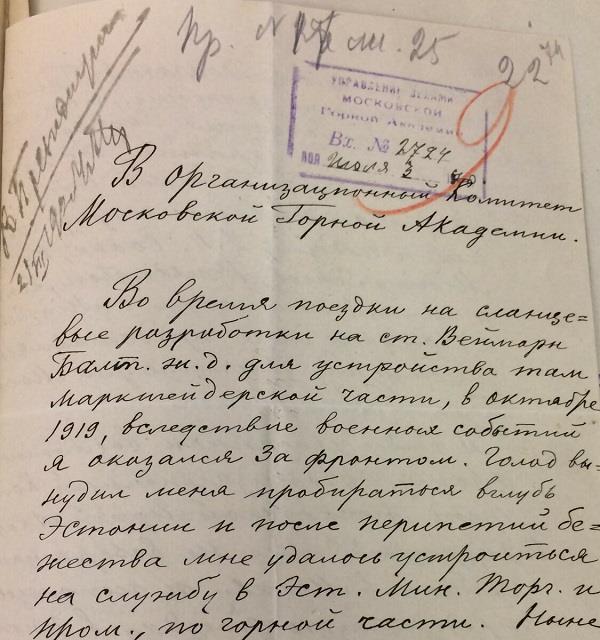 Пр. №
ли. 25
22
УПРАВЛЕНИЕ ДЕЛАМИ
МОСКОВСКОЙ
Горной Академии
Вх. № 2724
Июля 3
В Президиум
В организационный Комитет
Московской Горной Академии.
Во время поездки на сланце=
вые разработки на ст. Веймарн
Балт. ж. д. для устройства там
маркшейдерской части, в октябре
1919, вследствие военных событий
я оказался за фронтом. Голод вы-
нудил меня пробираться вглубь
Эстонии и после перипетий бе-
жества мне удалось устроиться
на службу в Эст. Мин. Торг. и
Пром., по горной части. Ныне